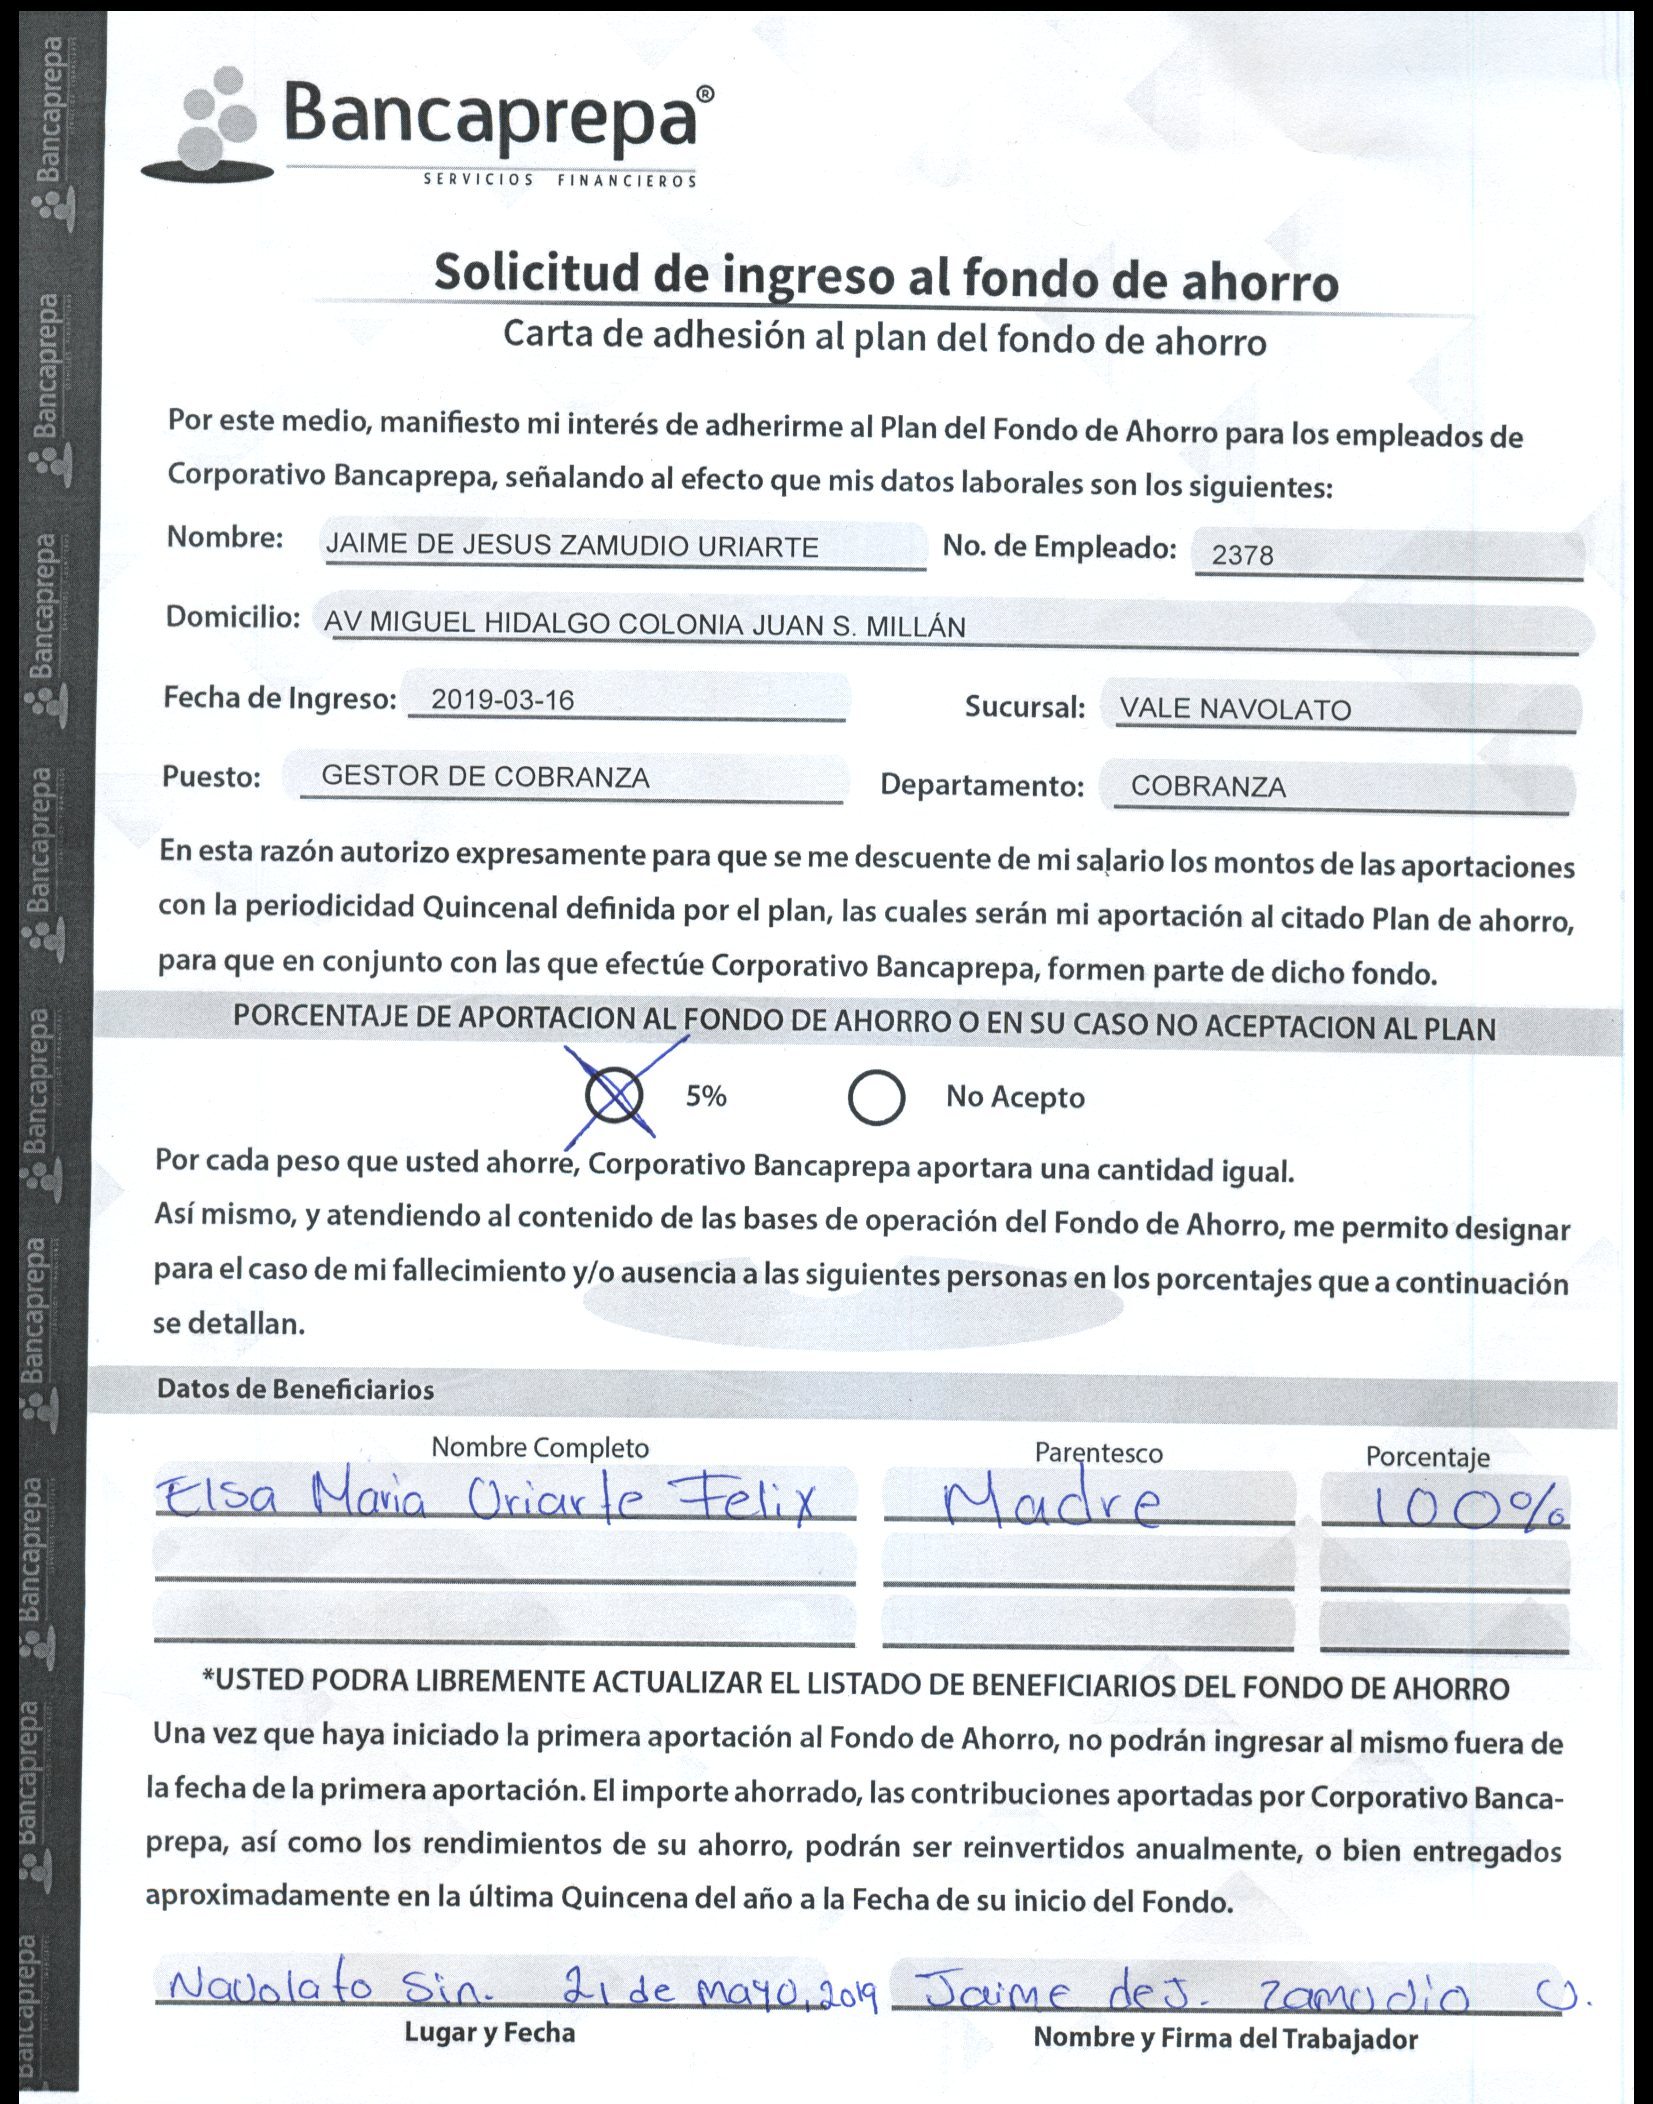 Bancaprepa®
SERVICIOS FINANCIEROS
Solicitud de ingreso al fondo de ahorro
Carta de adhesión al plan del fondo de ahorro
Por este medio, manifiesto mi interés de adherirme al Plan del Fondo de Ahorro para los empleados de
Corporativo Bancaprepa, señalando al efecto que mis datos laborales son los siguientes:
Nombre: JAIME DE JESUS ZAMUDIO URIARTE No. de Empleado: 2378
Domicilio: AV MIGUEL HIDALGO COLONIA JUAN S. MILLÁN
Fecha de Ingreso: 2019-03-16 Sucursal: VALE NAVOLATO
Puesto: GESTOR DE COBRANZA Departamento: COBRANZA
En esta razón autorizo expresamente para que se me descuente de mi salario los montos de las aportaciones
con la periodicidad Quincenal definida por el plan, las cuales serán mi aportación al citado Plan de ahorro,
para que en conjunto con las que efectúe Corporativo Bancaprepa, formen parte de dicho fondo.
PORCENTAJE DE APORTACION AL FONDO DE AHORRO O EN SU CASO NO ACEPTACION AL PLAN
5% No Acepto
Por cada peso que usted ahorre, Corporativo Bancaprepa aportara una cantidad igual.
Así mismo, y atendiendo al contenido de las bases de operación del Fondo de Ahorro, me permito designar
para el caso de mi fallecimiento y/o ausencia a las siguientes personas en los porcentajes que a continuación
se detallan.
Datos de Beneficiarios
Nombre Completo Parentesco Porcentaje
Elsa Maria Uriarte Felix Madre 100%
*USTED PODRA LIBREMENTE ACTUALIZAR EL LISTADO DE BENEFICIARIOS DEL FONDO DE AHORRO
Una vez que haya iniciado la primera aportación al Fondo de Ahorro, no podrán ingresar al mismo fuera de
la fecha de la primera aportación. El importe ahorrado, las contribuciones aportadas por Corporativo Banca-
prepa, así como los rendimientos de su ahorro, podrán ser reinvertidos anualmente, o bien entregados
aproximadamente en la última Quincena del año a la Fecha de su inicio del Fondo.
Navolato Sin. 21 de mayo, 2019 Jaime de J. Zamudio U.
Lugar y Fecha Nombre y Firma del Trabajador
Bancaprepa
Bancaprepa
Bancaprepa
Bancaprepa
Bancaprepa
Bancaprepa
Bancaprepa
Bancaprepa
Bancaprepa